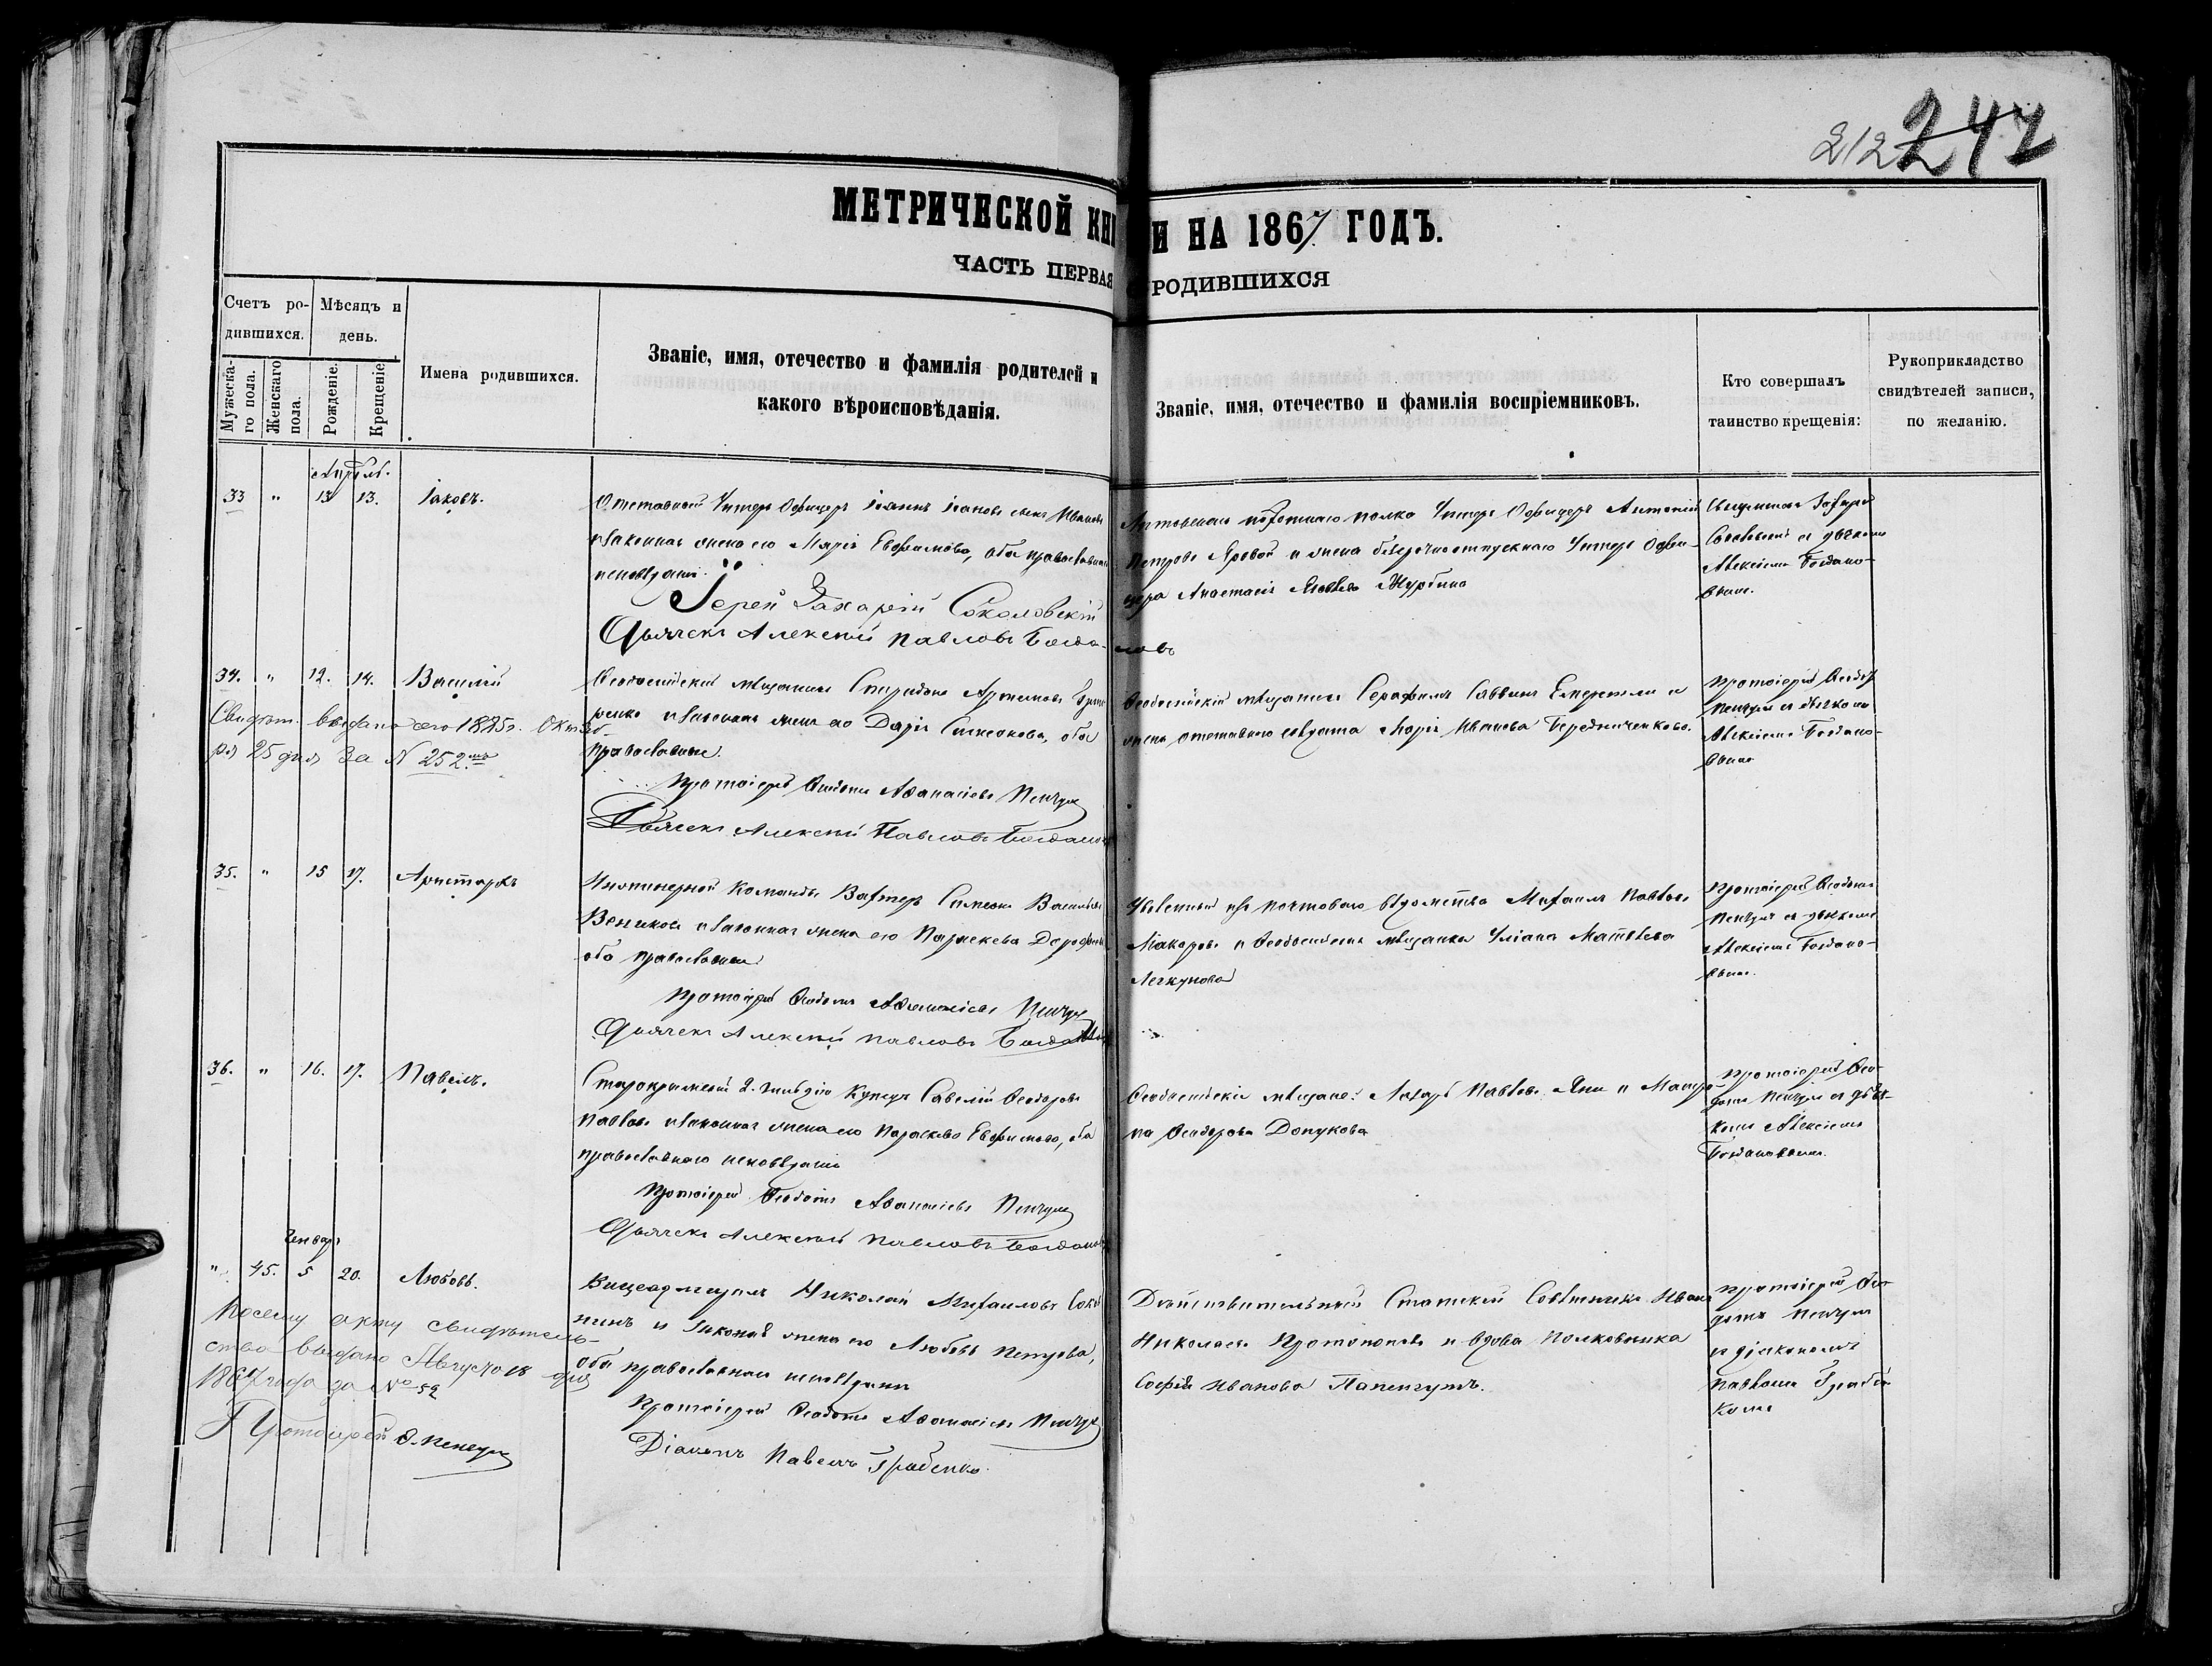 212 247
МЕТРИЧЕСКОЙ КНИ
И НА 1867 ГОДЪ.
ЧАСТЬ ПЕРВАЯ
РОДИВШИХСЯ
Счетъ ро-
дившихся.
Мужеска-
го пола.
Женскаго
пола.
Мѣсяцъ и
день.
Рожденіе.
Крещеніе.
Имена родившихся.
Званіе, имя, отечество и фамилія родителей и
какого вѣроисповѣданія.
Званіе, имя, отечество и фамилія воспріемниковъ.
Кто совершалъ
таинство крещенія:
Рукоприкладство
свидѣтелей записи,
по желанію.
33 " 13 13. Іаковъ.
Отставной Унтеръ Офицеръ Іоаннъ
и законная жена его Марія Евфимова, оба православнаго
исповѣданія.
Іерей Захарій Соколовскій
Дьячекъ Алексѣй Павловъ Богда-
новъ
пѣхотнаго полка Унтеръ Офицеръ Антоній
Петровъ Яровой и жена безсрочноотпускнаго Унтеръ Офи-
цера Анастасія Журбина
Священникъ Захарій
Соколовскій съ дьячкомъ
Алексіемъ Богдано-
вымъ.
34. " 12. 14. Василій
Свидѣт. выдано 1885 г. Октяб-
ря 25 дня за N 252
Ѳеодосійскій мѣщанинъ Спиридонъ Артемовъ
и законная жена его Дарія Симеонова, оба
православные.
Протоіерей Ѳеодотъ Аѳанасіевъ
Дьячекъ Алексѣй Павловъ Богдановъ
Ѳеодосійскій мѣщанинъ Серафимъ Саввинъ и
жена отставнаго солдата Марія Иванова Бередниченкова.
Протоіерей Ѳеодотъ
съ дьячкомъ
Алексіемъ Богдано-
вымъ
35. " 15 17. Аристархъ
Инженерной команды Вахтеръ Симеонъ Васильевъ
и законная жена его Параскева
оба православные
Протоіерей Ѳеодотъ Аѳанасіевъ
Дьячекъ Алексѣй Павловъ Богдановъ
Уволенный изъ почтоваго вѣдомства Михаилъ Павловъ
Макаровъ и Ѳеодосійская мѣщанка Уліана Матвѣева
Легкунова
Протоіерей Ѳеодотъ
съ дьячкомъ
Алексіемъ Богдано-
вымъ.
36. " 16. 17. Павелъ.
Старокрымскій 2. гильдіи купецъ Савелій Ѳеодоровъ
Павловъ и законная жена его Параскева Евфимова, оба
православнаго исповѣданія
Протоіерей Ѳеодотъ Аѳанасіевъ
Дьячекъ Алексѣй Павловъ Богдановъ
Ѳеодосійскіе мѣщане: Захаръ Павловъ и Матро-
на Ѳеодорова
Протоіерей Ѳео-
дотъ съ дьяч-
комъ Алексіемъ
Богдановымъ.
" 45. 5 20. Любовь.
По сему акту свидѣтель-
ство выдано Августа 18 дня
1867 года за № 52
Протоіерей Ѳ.
Вицеадмиралъ Николай Михаиловъ
и законная жена его Любовь Петрова,
оба православнаго исповѣданія
Протоіерей Ѳеодотъ Аѳанасіевъ
Діаконъ Павелъ Грабенко.
Дѣйствительный Статскій Совѣтникъ Иванъ
Николаевъ Протопоповъ и вдова Полковника
Софія Иванова Папенгутъ.
Протоіерей Ѳео-
дотъ
съ діакономъ
Павломъ Грабен-
комъ